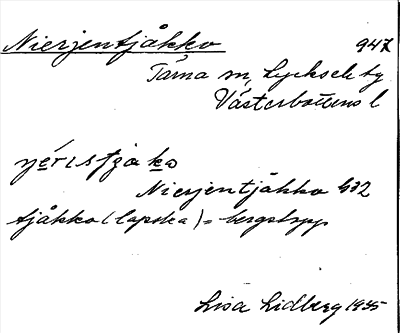 Nierjentjåkko 947
Tärna sn, Lycksele tg
Västerbottens l
njéristjako
Nierjentjåkko 632
tjåkko (lapska) = bergstopp
Lisa Lidberg 1935